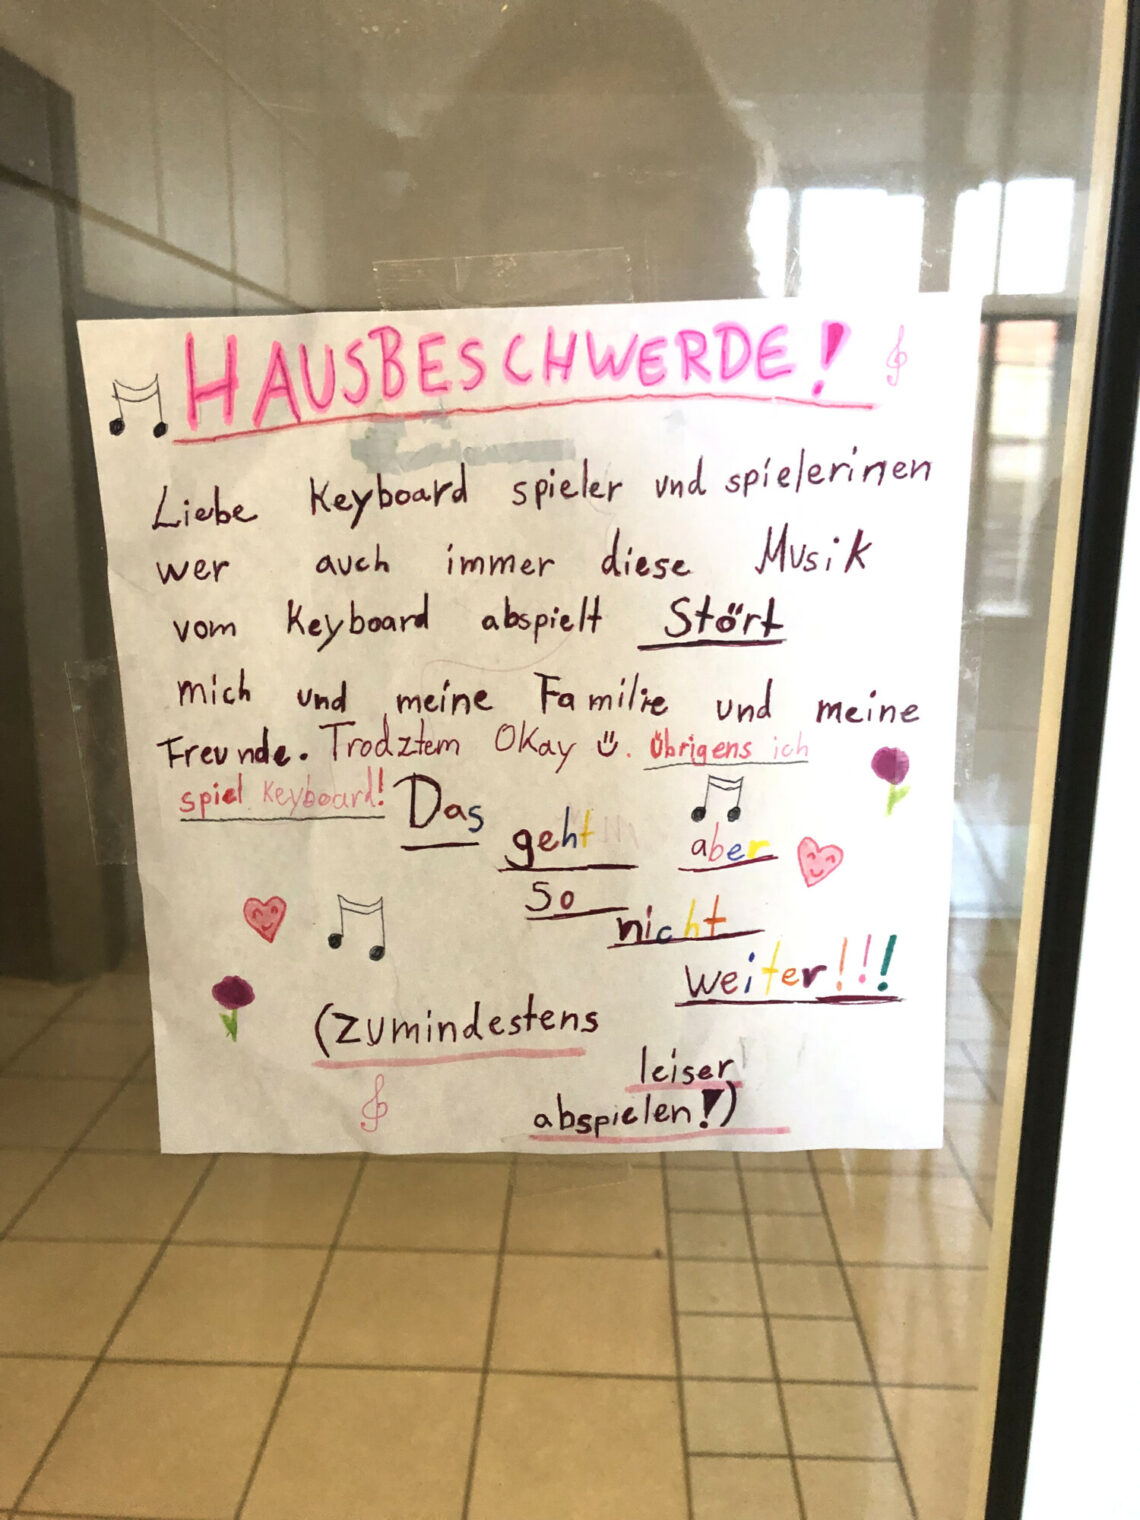 HAUSBESCHWERDE!
Liebe Keyboard spieler und spielerinen
wer auch immer diese Musik
vom Keyboard abspielt Stört
mich und meine Familie und meine
Freunde. Trodztem Okay Ü. Übrigens ich
spiel Keyboard! Das
geht aber
so
nicht
weiter!!!
(zumindestens
leiser
abspielen!)